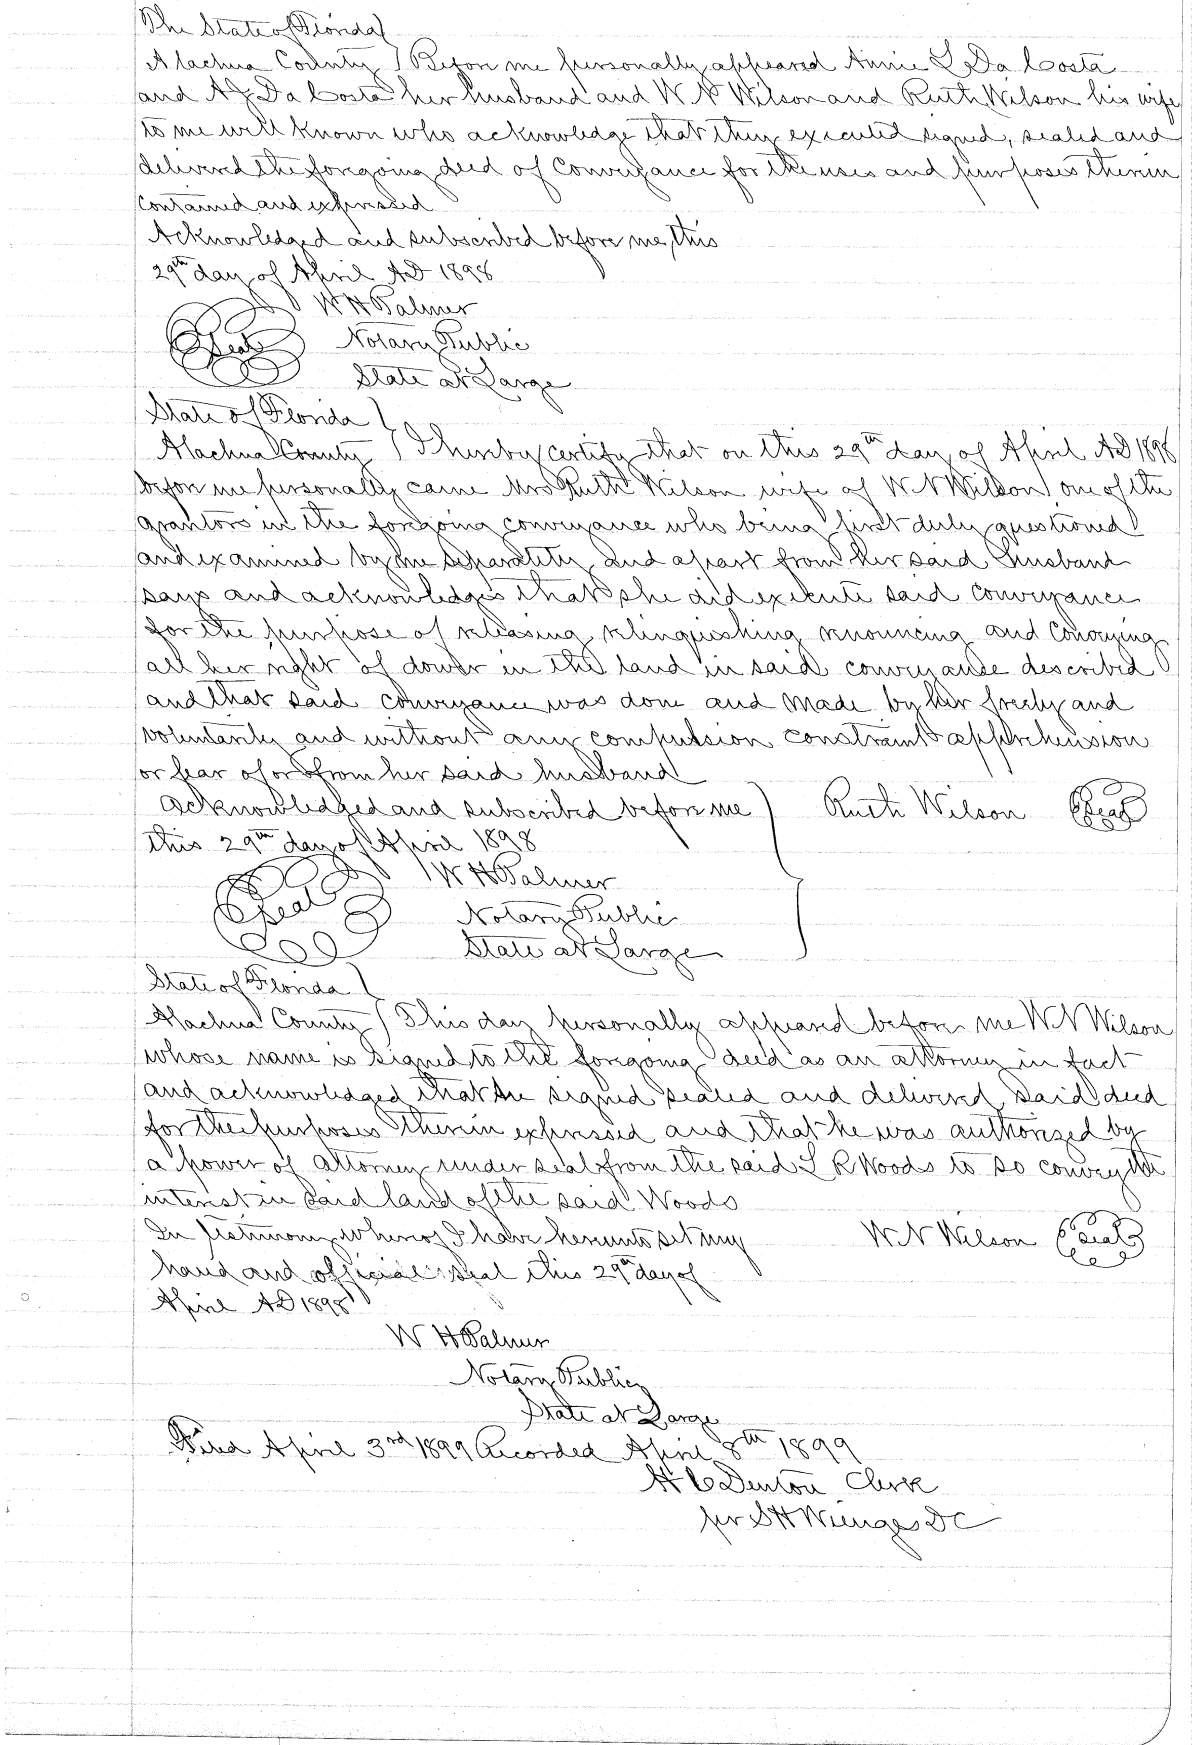 The State of Florida }
Alachua County } Before me personally appeared Annie L Da Costa
and A J Da Costa her husband and W N Wilson and Ruth Wilson his wife
to me well known who acknowledge that they executed signed, sealed and
delivered the foregoing deed of Conveyance for the uses and purposes therein
contained and expressed
Acknowledged and subscribed before me, this
29th day of April AD 1898
W H Palmer
Seal Notary Public
State at Large
State of Florida }
Alachua County } I hereby certify that on this 29th day of April AD 1898
before me personally came Mrs Ruth Wilson wife of W N Wilson one of the
grantors in the foregoing conveyance who being first duly questioned
and examined by me separately and apart from her said husband
says and acknowledges that she did execute said conveyance
for the purpose of releasing relinquishing renouncing and conveying
all her right of dower in the land in said conveyance described
and that said conveyance was done and made by her freely and
voluntarily and without any compulsion constraint apprehension
or fear of or from her said husband
Acknowledged and subscribed before me } Ruth Wilson Seal
this 29th day of April 1898
W H Palmer
Seal Notary Public
State at Large
State of Florida }
Alachua County } This day personally appeared before me W N Wilson
whose name is signed to the foregoing deed as an attorney in fact
and acknowledged that he signed sealed and delivered said deed
for the purposes therein expressed and that he was authorized by
a power of attorney under seal from the said L R Woods to so convey the
interest in said land of the said Woods
In testimony whereof I have hereunto set my W N Wilson Seal
hand and official seal this 29th day of
April AD 1898
W H Palmer
Notary Public
State at Large
Filed April 3rd 1899 Recorded April 8th 1899
H C Denton Clerk
per S H Wienges DC